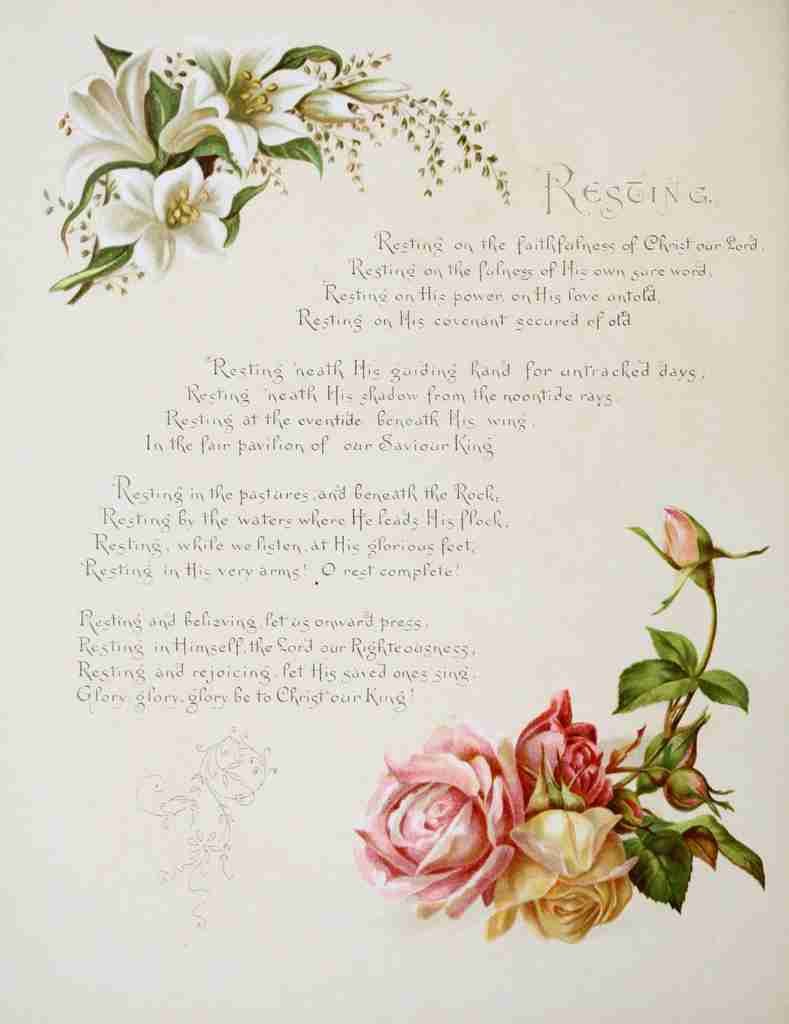 RESTING.
Resting on the faithfulness of Christ our Lord,
Resting on the fulness of His own sure word,
Resting on His power, on His love untold,
Resting on His covenant secured of old
Resting 'neath His guiding hand for untracked days,
Resting 'neath His shadow from the noontide rays
Resting at the eventide beneath His wing,
In the fair pavilion of our Saviour King
Resting in the pastures, and beneath the Rock,
Resting by the waters where He leads His flock,
Resting, while we listen, at His glorious feet,
Resting in His very arms! O rest complete!
Resting and believing, let us onward press,
Resting in Himself, the Lord our Righteousness,
Resting and rejoicing, let His saved ones sing,
Glory, glory, glory be to Christ our King!